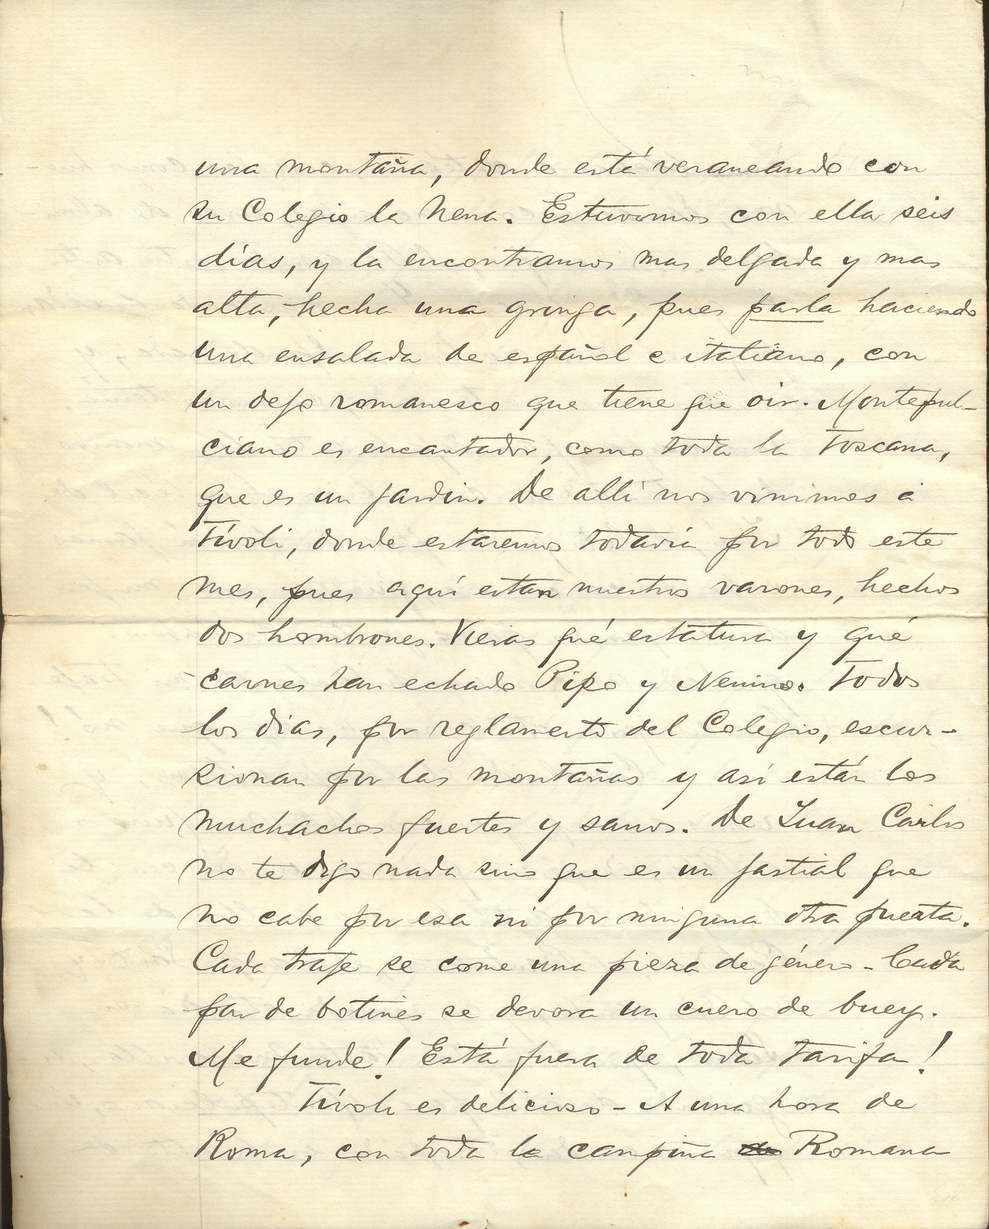 una montaña, donde está veraneando con
su Colegio la Nena. Estuvomos con ella seis
días, y la encontramos mas delgada y mas
alta, hecha una gringa, pues parla haciendo
una ensalada de español e italiano, con
un dejo romanesco que tiene que oir. Montepul-
ciano es encantador, como toda la Toscana,
que es un jardin. De allí nos vinimos á
Tívoli, donde estaremos todavía por todo este
mes, pues aquí estan nuestros varones, hechos
dos hombrones. Vieras qué estatura y qué
carnes han echado Pipo y Nenino. Todos
los dias, por reglamento del Colegio, escur-
sionan por las montañas y así están los
muchachos fuertes y sanos. De Juan Carlos
no te digo nada sino que es un jastial que
no cabe por esa ni por ninguna otra puerta.
Cada traje se come una pieza de género - Cada
par de botines se devora un cuero de buey.
Me funde! Está fuera de toda tarifa!
Tívoli es delicioso - A una hora de
Roma, con toda la campiña Romana